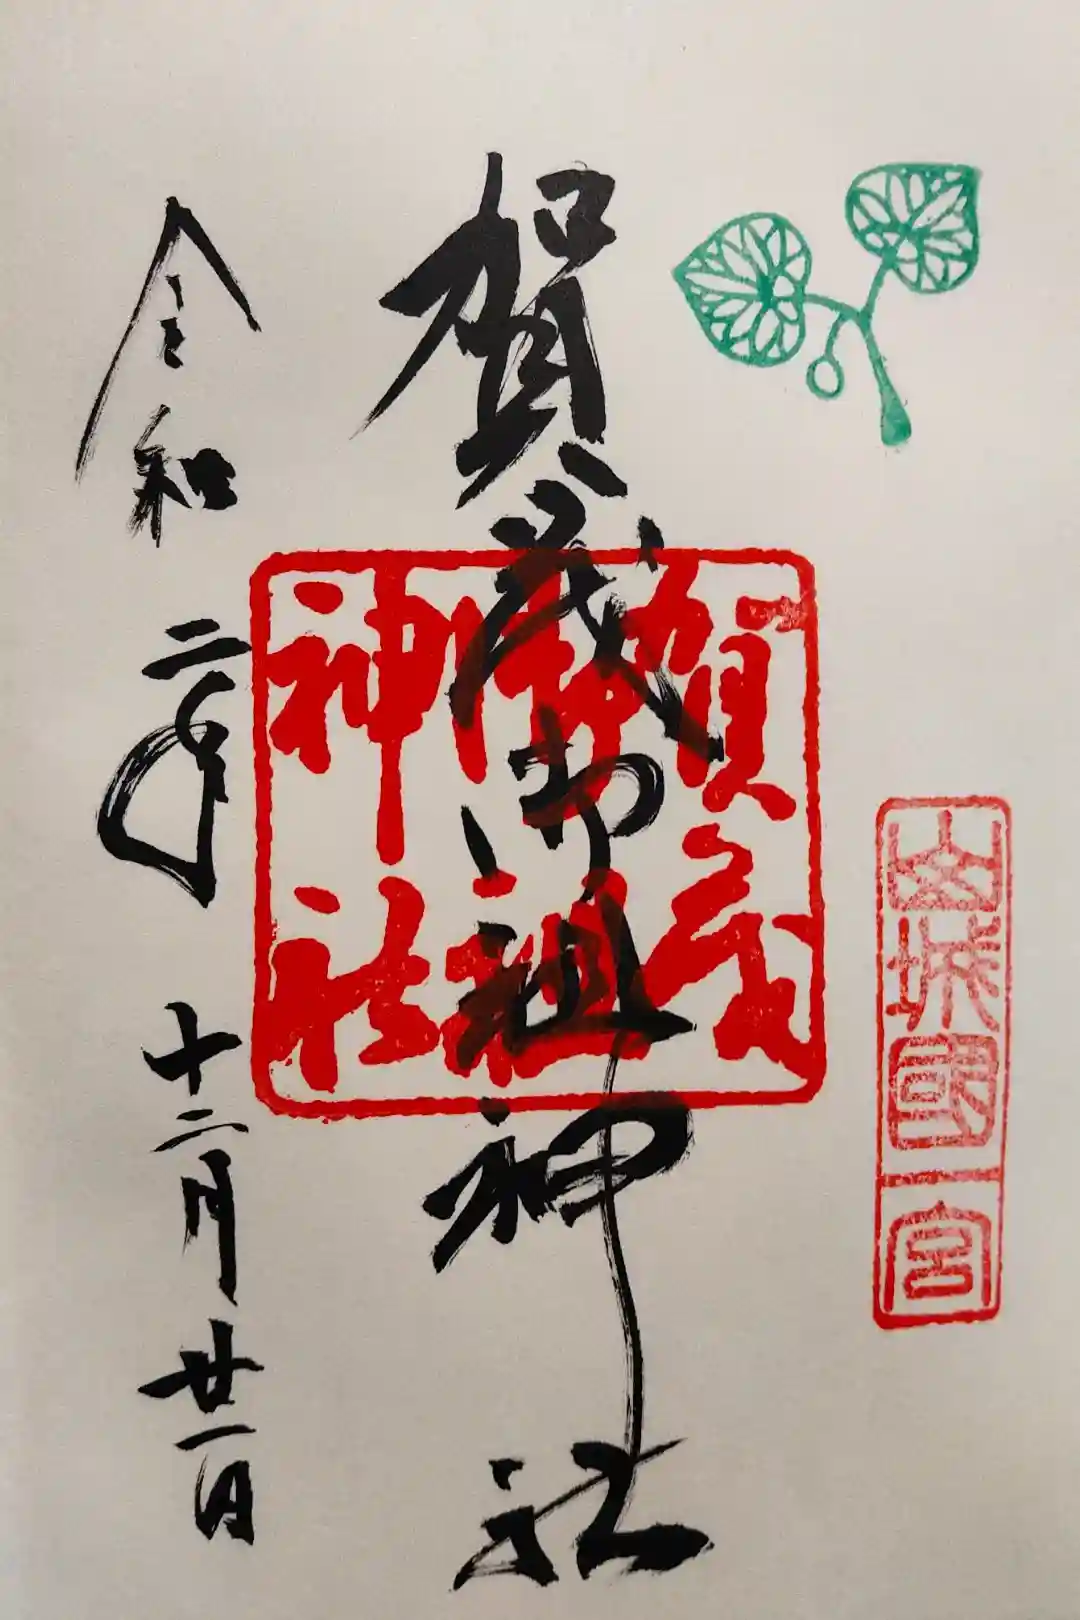 山城國一宮
賀茂御祖神社
賀茂
御祖
神社
令和二年十二月廿一日